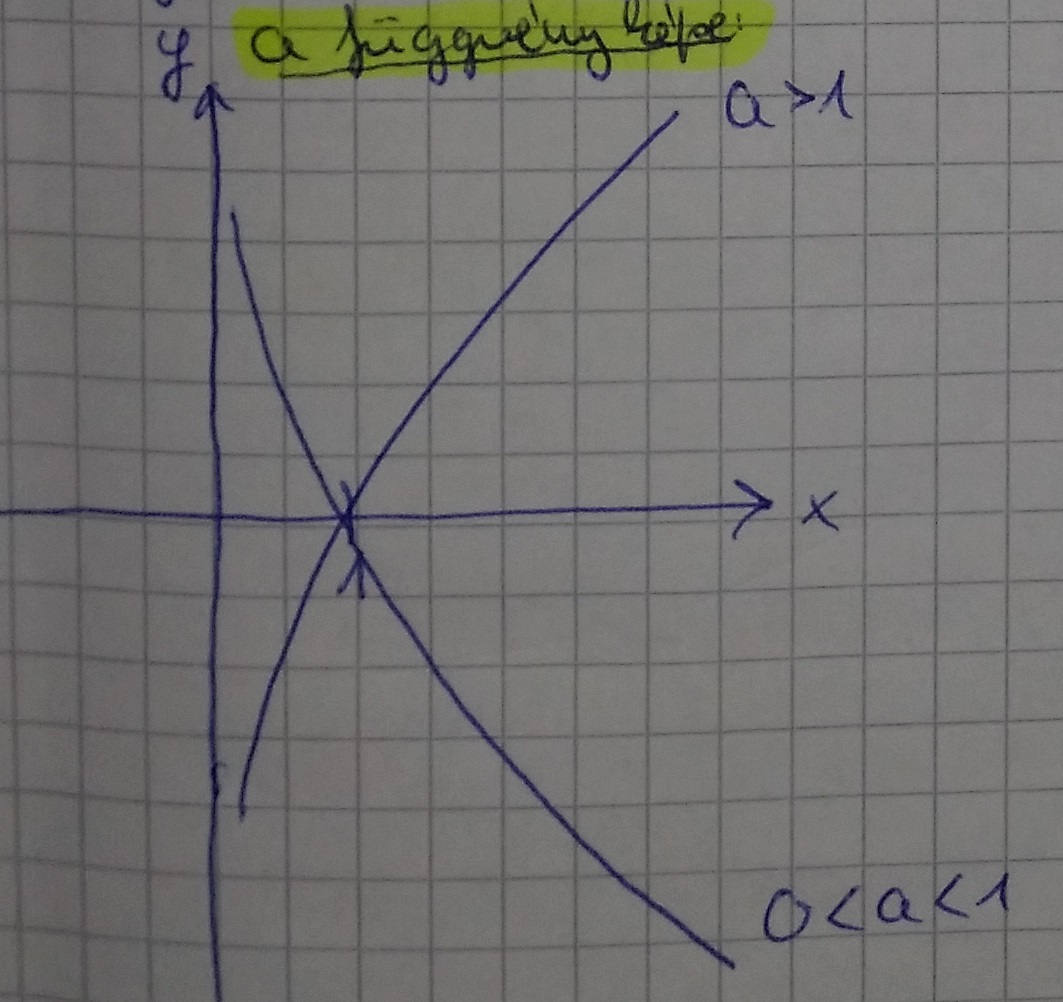 a függvény képe:
y
a >1
x
1
0<a<1